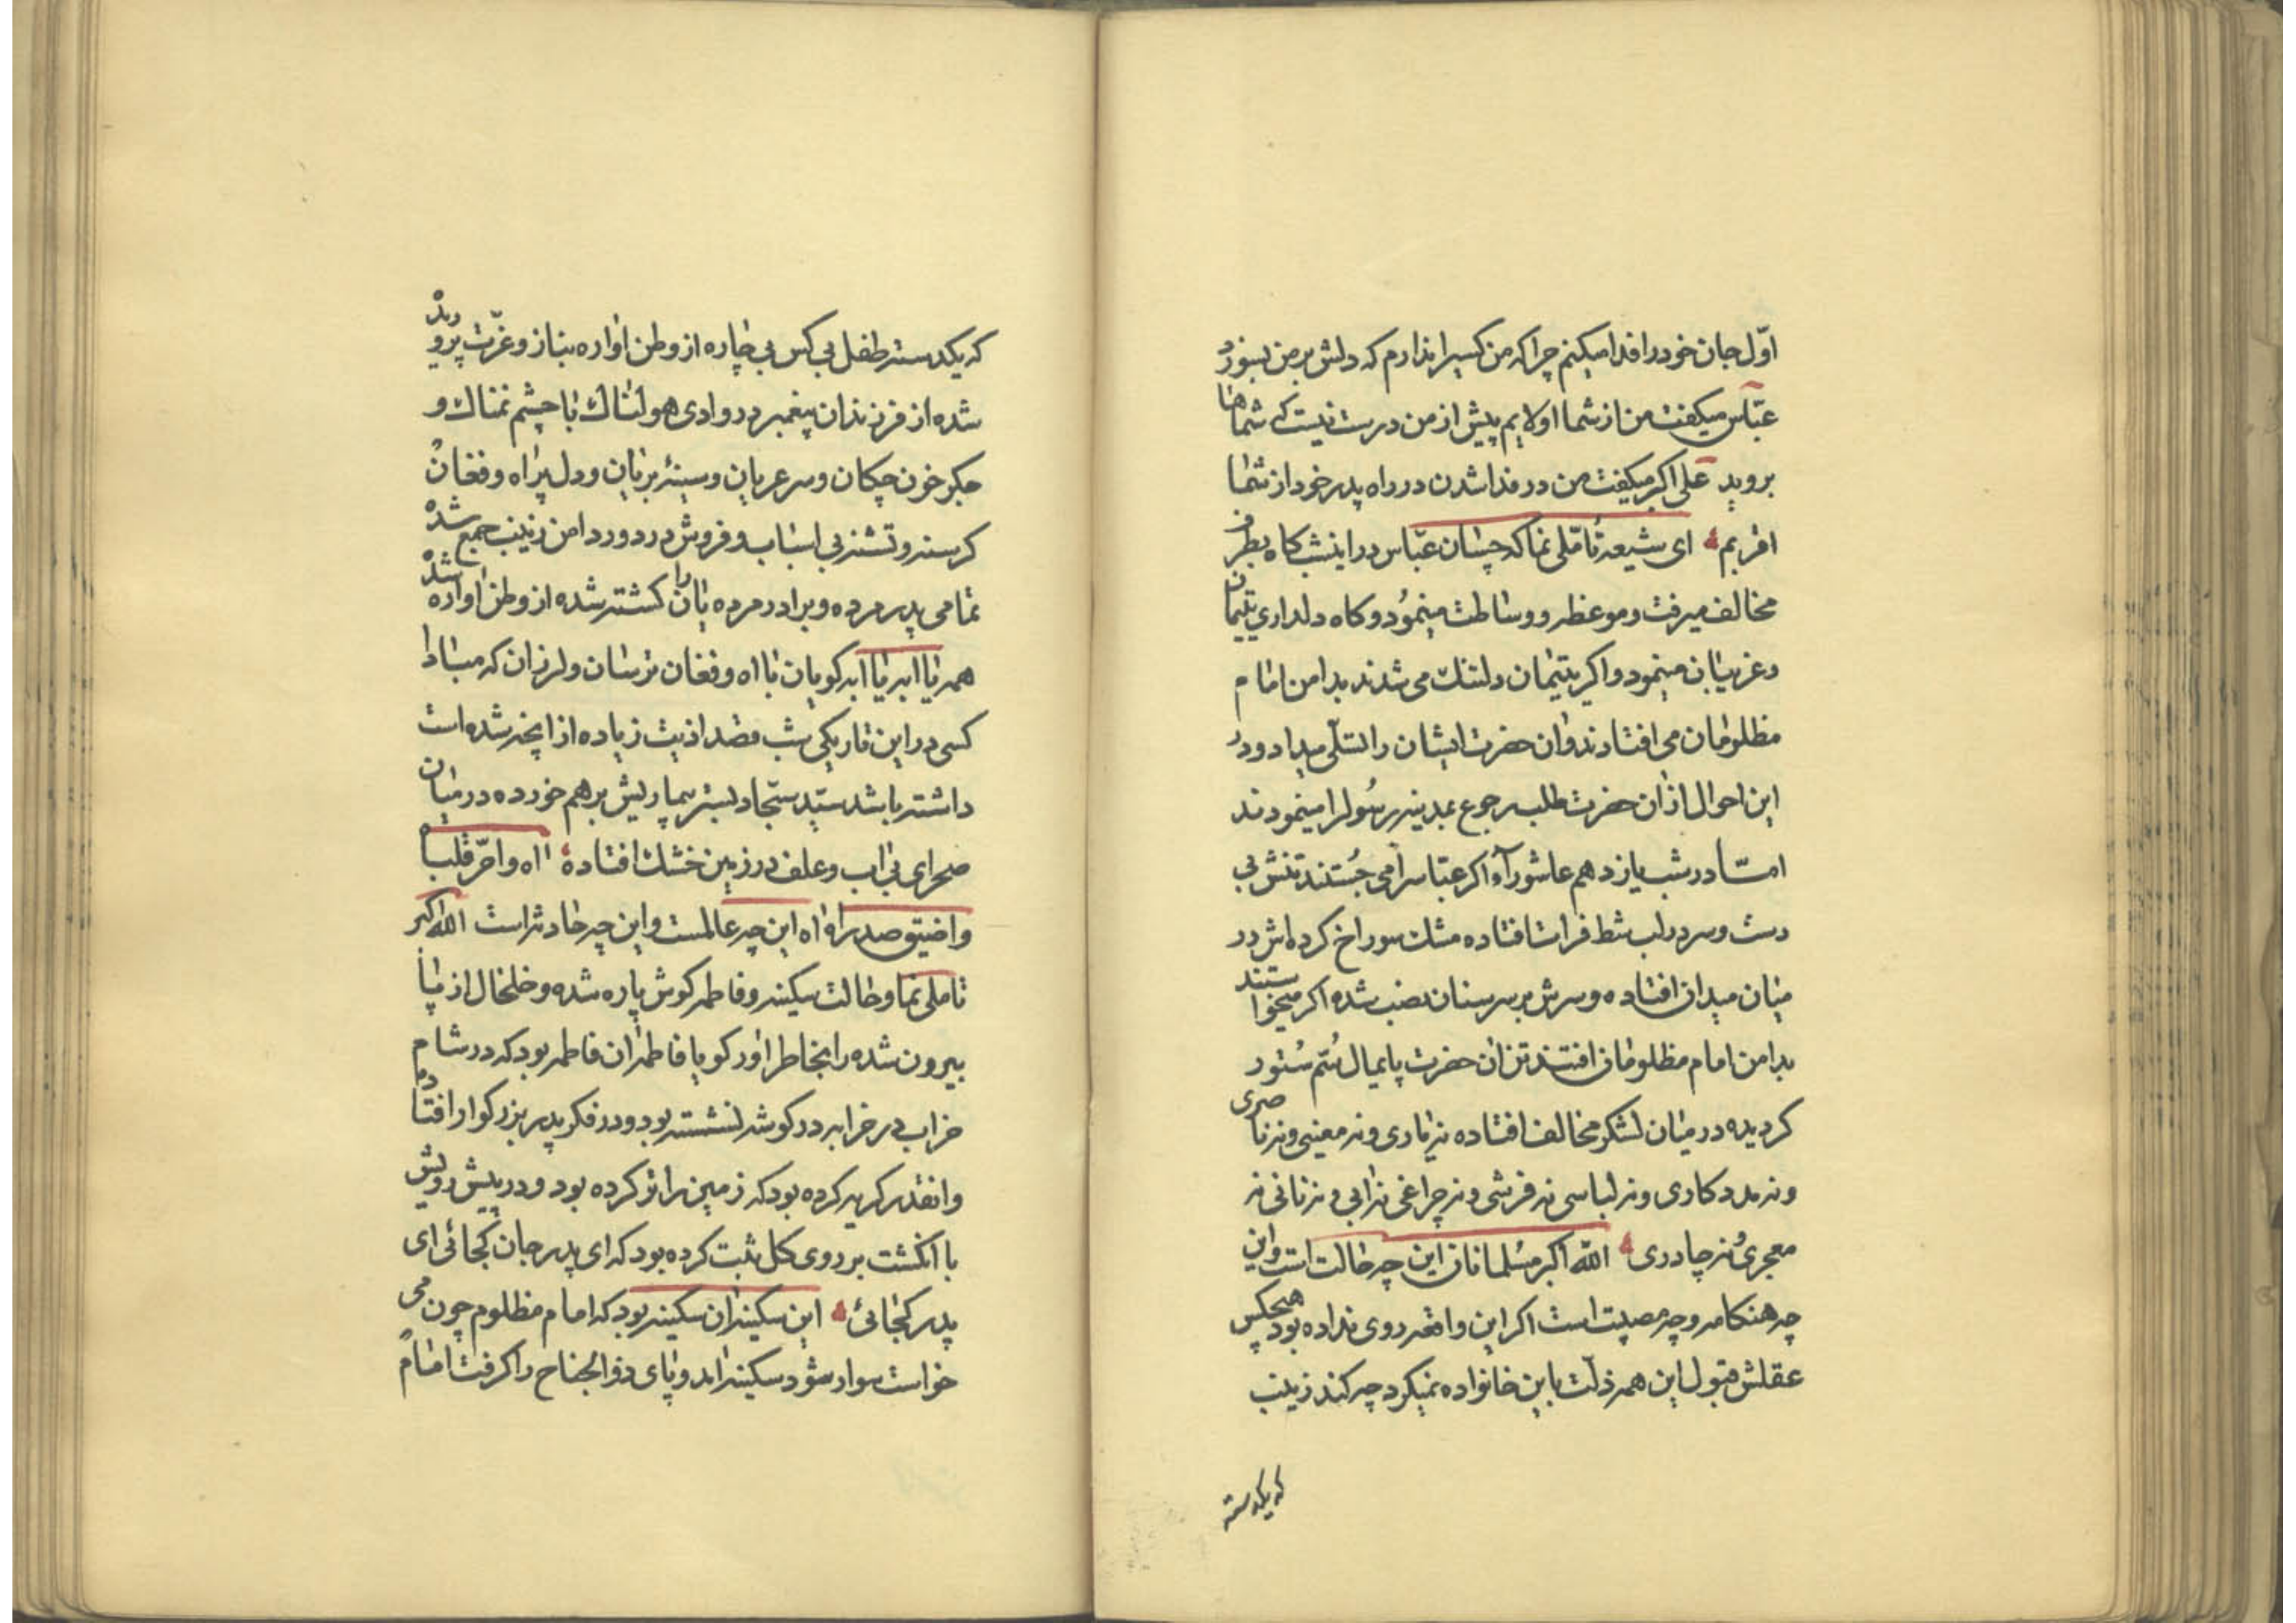 اوّل جان خود را فدا میکنم چرا که من کسیرا ندارم که دلش بر من بسوزد
عبّاس میکفت من از شما اولایم پیش از من درست نیست که شماها
بروید علی اکبر میکفت من در فدا شدن در راه پدر خود از شما
اقربم ای شیعه تامّلی نما که چسان عبّاس در اینشب کاه بطرف
مخالف میرفت و موعظه و وساطت مینمُود و کاه دلداری یتیمان
و غریبان مینمود و اکر یتیمان دلتنک می شدند بدامن امام
مظلومان می افتادند و ان حضرت ایشان را تسلّی میداد و در
این احوال از ان حضرت طلب رجوع بمدینه رسُولرا مینمودند
امّا در شب یازدهم عاشورا اکر عبّاسرا می جُستند تنش بی
دست و سر در لب شط فرات افتاده مشک سوراخ کرده اش در
میان میدان افتاده و سرش بر سر سنان نصب شده اکر میخواستند
بدامن امام مظلومان افتند تن ان حضرت پایمال سُمّ سُتور
کردیده در میان لشکر مخالف افتاده نه یاری و نه معینی و نه ناصری
و نه مددکاری و نه لباسی نه فرشی و نه چراغی نه ابی و نه نانی نه
معجری نه چادری الله اکبر مسُلمانان این چه حالت است و این
چه هنکامه و چه مصیبت است اکر این واقعه روی نداده بود هیچکس
عقلش قبول این همه ذلّت باین خانواده نمیکرد چه کند زینب
که یکدسته
که یکدسته طفل بی کس بی چاره از وطن اواره بناز و عزّت پرورید
شده از فرزندان پیغمبر در وادی هولناک با چشم نمناک و
جکر خون چکان و سر عریان و سینهٔ بریان و دل پر اه و فغان
کرسنه و تشنه بی اسباب و فروش در دور دامن زینب جمع شده
تمامی پدر مرده و برادر مرده یا ان را کشته شده از وطن اواره شده
همه یا ابه یا ابه کویان با اه و فغان ترسان و لرزان که مبادا
کسی در این تاریکی شب قصد اذیت زیاده از انچه شده است
داشته باشد سیّد سجّاد بستر بیماریش برهم خورده در میان
صحرای بی اب و علف در زمین خشک افتاده اه واحرّ قلباه
واضیق صدراه اه این چه عالمست و این چه حادثه است الله اکبر
تاملی نما و حالت سکینه و فاطمه کوش پاره شده و خلخال از پا
بیرون شده را بخاطر اور کویا فاطمه ان فاطمه بود که در شام
خراب در خرابه در کوشه نشسته بود و در فکر پدر بزرکوار افتاد
و انقدر کریه کرده بود که زمین را تر کرده بود و در پیش رویش
با انکشت بر روی کل ثبت کرده بود که ای پدر جان کجائی ای
پدر کجائی این سکینه ان سکینه بود که امام مظلوم چون می
خواست سوار شود سکینه امد و پای ذوالجناح را کرفت امام